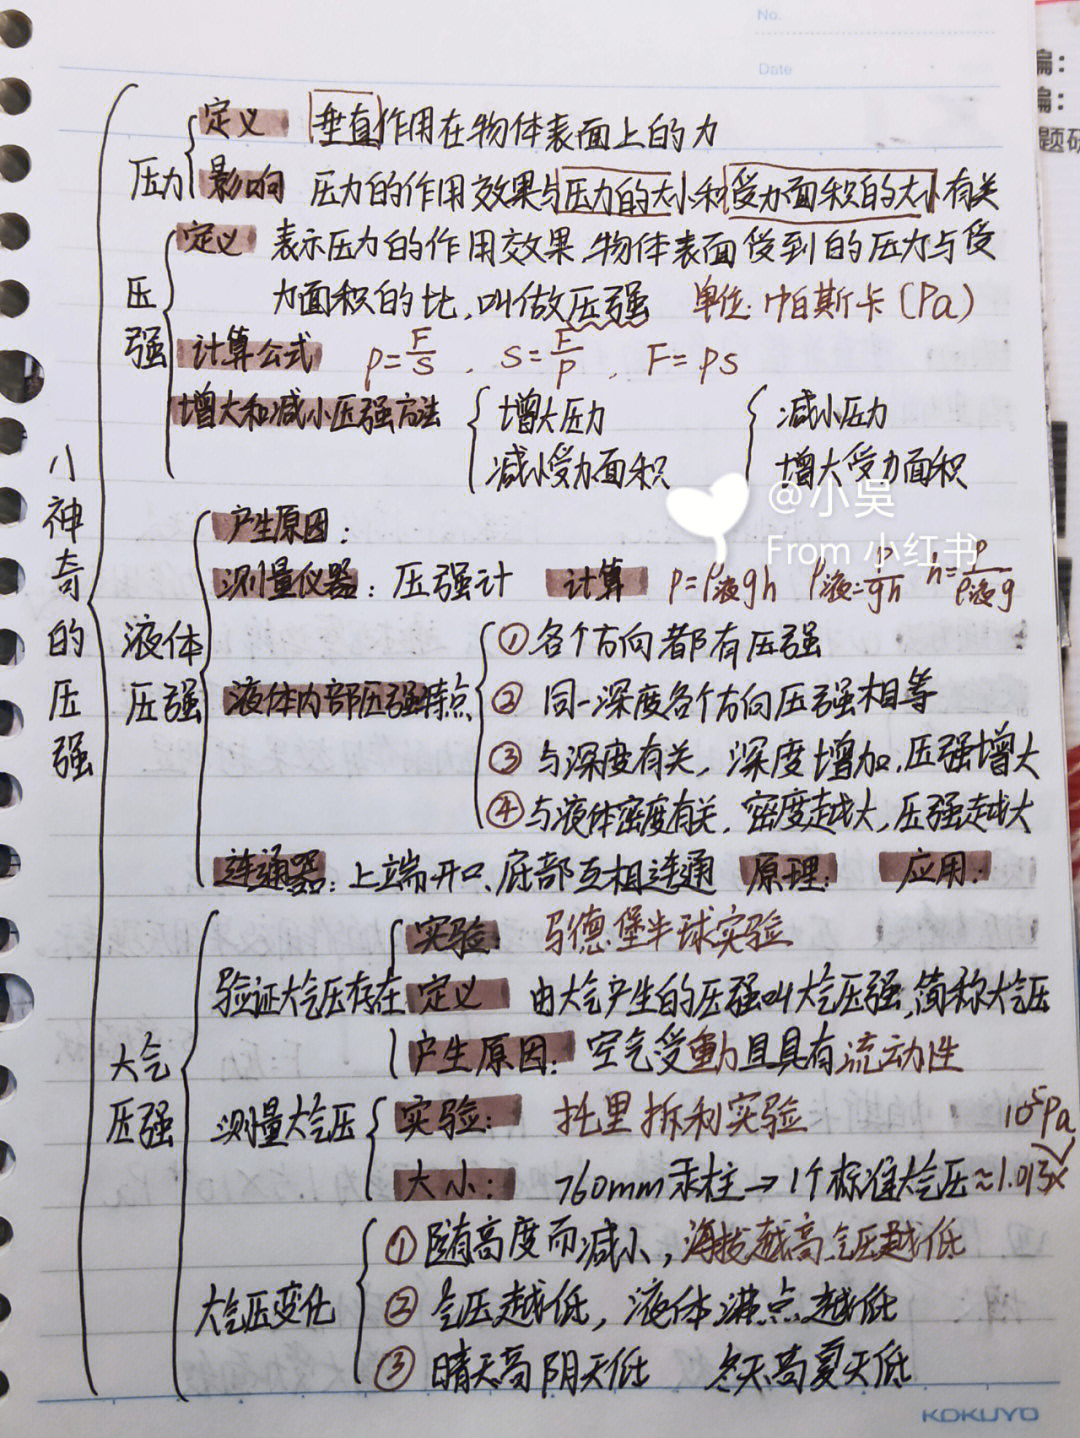 No.
Date
编:
编:
题研
八神奇的压强
压力
定义 垂直作用在物体表面上的力
影响 压力的作用效果与压力的大小和受力面积的大小有关
压强
定义 表示压力的作用效果.物体表面受到的压力与受
力面积的比,叫做压强 单位:帕斯卡(Pa)
计算公式 p=F/S , S=F/p , F=ps
增大和减小压强方法
增大压力 减小压力
减小受力面积 增大受力面积
@小吴
From 小红书
液体压强
产生原因:
测量仪器:压强计 计算 p=ρ液gh ρ液=p/gh h=p/ρ液g
液体内部压强特点
①各个方向都有压强
② 同一深度各个方向压强相等
③ 与深度有关,深度增加,压强增大
④与液体密度有关,密度越大,压强越大
连通器:上端开口、底部互相连通 原理: 应用:
大气压强
验证大气压存在
实验: 马德堡半球实验
定义 由大气产生的压强叫大气压强,简称大气压
产生原因: 空气受重力且具有流动性
测量大气压
实验: 托里拆利实验
大小: 760mm汞柱→1个标准大气压≈1.013×
10⁵Pa
大气压变化
① 随高度而减小,海拔越高气压越低
② 气压越低,液体沸点越低
③ 晴天高阴天低 冬天高夏天低
KOKUYO